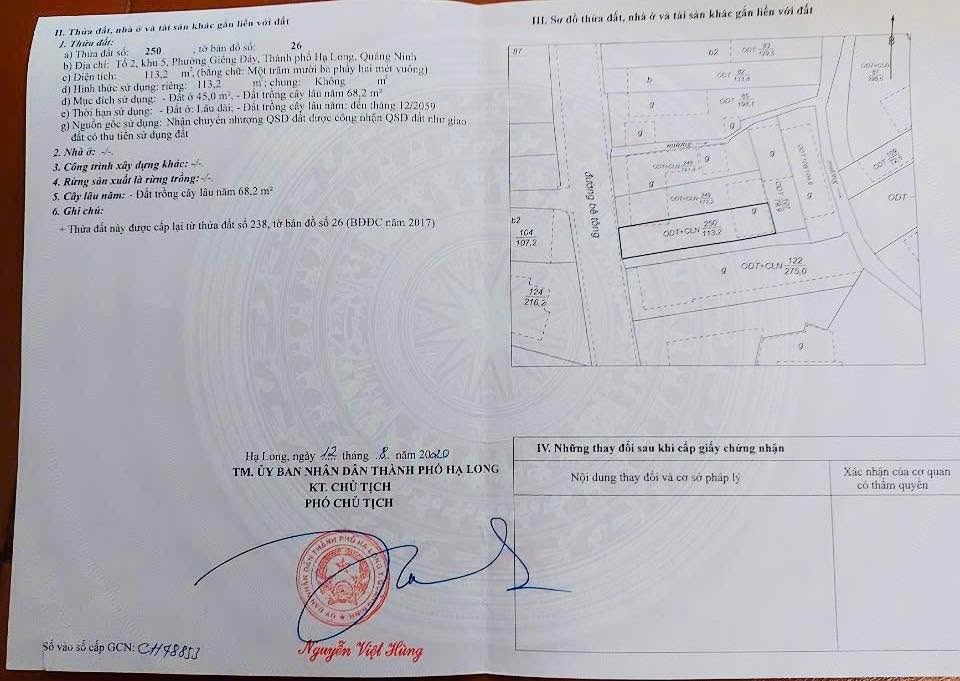 II. Thửa đất, nhà ở và tài sản khác gắn liền với đất
1. Thửa đất:
a) Thửa đất số: 250 , tờ bản đồ số: 26
b) Địa chỉ: Tổ 2, khu 5, Phường Giếng Đáy, Thành phố Hạ Long, Quảng Ninh
c) Diện tích: 113,2 m², (bằng chữ: Một trăm mười ba phẩy hai mét vuông)
d) Hình thức sử dụng: riêng: 113,2 m²; chung: Không m²
đ) Mục đích sử dụng: - Đất ở 45,0 m², - Đất trồng cây lâu năm 68,2 m²
e) Thời hạn sử dụng: - Đất ở: Lâu dài; - Đất trồng cây lâu năm: đến tháng 12/2059
g) Nguồn gốc sử dụng: Nhận chuyển nhượng QSD đất được công nhận QSD đất như giao
đất có thu tiền sử dụng đất
2. Nhà ở: -/-.
3. Công trình xây dựng khác: -/-.
4. Rừng sản xuất là rừng trồng:-/-.
5. Cây lâu năm: - Đất trồng cây lâu năm 68,2 m²
6. Ghi chú:
+ Thửa đất này được cấp lại từ thửa đất số 238, tờ bản đồ số 26 (BĐĐC năm 2017)
Hạ Long, ngày 12 tháng 8 năm 2020
TM. ỦY BAN NHÂN DÂN THÀNH PHỐ HẠ LONG
KT. CHỦ TỊCH
PHÓ CHỦ TỊCH
Nguyễn Việt Hùng
Số vào sổ cấp GCN: CH48853
III. Sơ đồ thửa đất, nhà ở và tài sản khác gắn liền với đất
B
87
b2
ODT
b
ODT
g
ODT
g
mương
g
ODT+CLN
g
ODT+CLN
g
g
ODT+CLN 250
113,2
đường bê tông
b2
104
107,2
124
216,2
g
ODT+CLN 122
275,0
g
ODT+CLN
ODT
ODT
g
IV. Những thay đổi sau khi cấp giấy chứng nhận
Nội dung thay đổi và cơ sở pháp lý
Xác nhận của cơ quan
có thẩm quyền